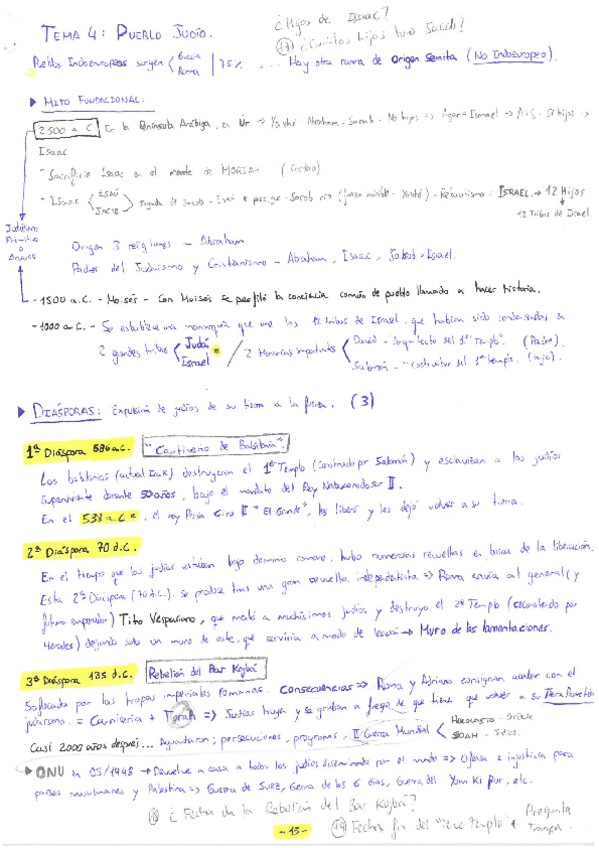 ¿Hijos de Isaac?
TEMA 4: PUEBLO JUDÍO.
(17) ¿Cuántos hijos tuvo Jacob?
Pueblos Indoeuropeos surgen Grecia Roma 75% ... Hay otra rama de Origen Semita (No Indoeuropeo).
MITO FUNDACIONAL:
2500 a.C. En la Península Arábiga, en Ur → Yavhé - Abraham - Sarah - No hijos => Agar = Ismael => A+S = Sí hijos =>
Isaac
- Sacrificio Isaac en el monte de MORIA (Cordero)
- Isaac ESAÚ JACOB - Jacob - Esaú persigue - Jacob - Yavhé) - Rebautismo: ISRAEL → 12 Hijos
12 Tribus de Israel.
Judaísmo
Primitivo
o
Arcaico
Origen 3 religiones - Abraham
Padres del Judaísmo y Cristianismo - Abraham, Isaac, Jakob = Israel.
- 1500 a.C. - Moisés - Con Moisés se perfiló la conciencia común de pueblo llamado a hacer historia.
- 1000 a.C. - Se establece una monarquía que une las 12 tribus de Israel, que habían sido condensadas en
2 grandes tribus Judá Israel / 2 Monarcas importantes David - Arquitecto del 1er Templo. (Padre).
Salomón - "Constructor del 1er templo. (Hijo).
DIÁSPORAS: Expulsión de judíos de su tierra a la fuerza. (3)
1ª Diáspora 586 a.C. "Cautiverio de Babilonia"
Los babilonios (actual Irak) destruyeron el 1er Templo (construido por Salomón) y esclavizan a los judíos
superviviente durante 50 años, bajo el mandato del Rey Nabucodonosor II.
En el 538 a.C*, el rey Persa Ciro II "El Grande", les liberó y les dejó volver a su tierra.
2ª Diáspora 70 d.C.
En el tiempo que los judíos estaban bajo dominio romano, hubo numerosas revueltas en busca de la liberación.
Esta 2ª Diáspora (70 d.C.) se produce tras una gran revuelta independentista => Roma envía al general (y
futuro emperador) Tito Vespasiano, que mató a muchísimos judíos y destruyó el 2º Templo (reconstruido por
Herodes) dejando solo un muro de este, que serviría a modo de lección → Muro de las lamentaciones.
3ª Diáspora 135 d.C. Rebelión del Bar Kojbá
Sofocada por las tropas imperiales romanas. Consecuencias => Roma y Adriano consiguen acabar con el
judaísmo. = Carnicería + Torah => Judíos huyen y se graban a fuego de que tienen que volver a su Tierra Prometida
Casi 2000 años después... Aguantaron; persecuciones, progromos, II Guerra Mundial HOLOCAUSTO SOAH
ONU en 05/1948 → Devuelve a casa a todos los judíos diseminados por el mundo => Ofensa e injusticia para
países musulmanes y Palestina => Guerra de Suez, Guerra de los 6 días, Guerra del Yom Kippur, etc.
(18) ¿Fecha de la Rebelión del Bar Kojbá?
- 15 -
(19) Fecha fin del "1er Templo" * Pregunta
Trampa.